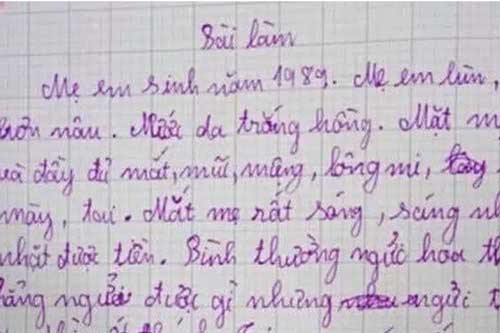 Bài làm
Mẹ em sinh năm 1989. Mẹ em lùn,
nâu. Nước da trắng hồng. Mắt
và đầy đủ mắt, mũi, mồng, lông mi,
mày, tai. Mắt mẹ rất sáng, sáng
nhặt được tiền. Bình thường người hoa
hẳng người được gì nhưng người